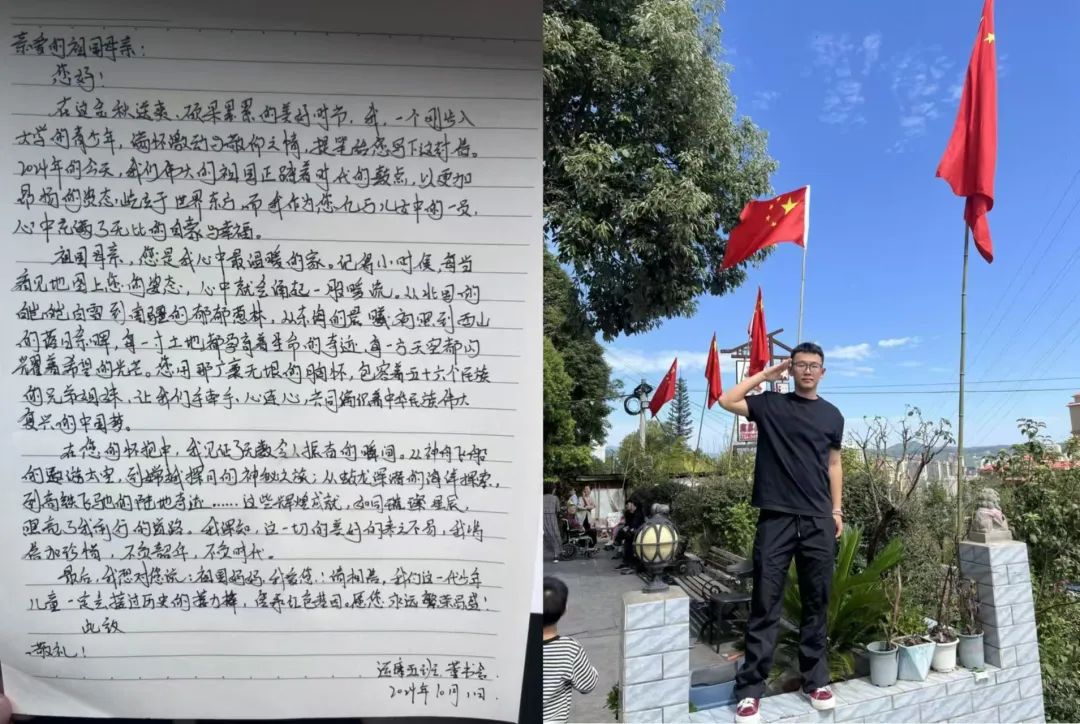 亲爱的祖国母亲：
您好！
在这金秋送爽、硕果累累的美好时节，我，一个刚步入
大学的青少年，满怀激动与敬仰之情，提笔给您写下这封信。
2024年的今天，我们伟大的祖国正踏着时代的鼓点，以更加
昂扬的姿态屹立于世界东方，而我作为您亿万儿女中的一员，
心中充满了无比的自豪与幸福。
祖国母亲，您是我心中最温暖的家。记得小时候，每当
看见地图上您的姿态，心中就会涌起一股暖流。从北国的
皑皑白雪到南疆的郁郁葱林，从东海的晨曦初照到西山
的落日余晖，每一寸土地都孕育着生命的奇迹，每一方天空都闪
耀着希望的光芒。您用那广袤无垠的胸怀，包容着五十六个民族
的兄弟姐妹，让我们手牵手，心连心，共同编织着中华民族伟大
复兴的中国梦。
在您的怀抱中，我见证了无数令人振奋的瞬间。从神舟飞船
的遨游太空，到嫦娥探月的神秘之旅；从蛟龙深潜的海洋探索，
到高铁飞驰的陆地奇迹……这些辉煌成就，如同璀璨星辰，
照亮了我前行的道路。我深知，这一切的美好的来之不易，我将
倍加珍惜，不负韶华，不负时代。
最后，我想对您说：祖国妈妈，我爱您！请相信，我们这一代少年
儿童一定会接过历史的接力棒，赓续红色基因。愿您永远繁荣昌盛！
此致
敬礼！
运康五班 董书含
2024年10月1日